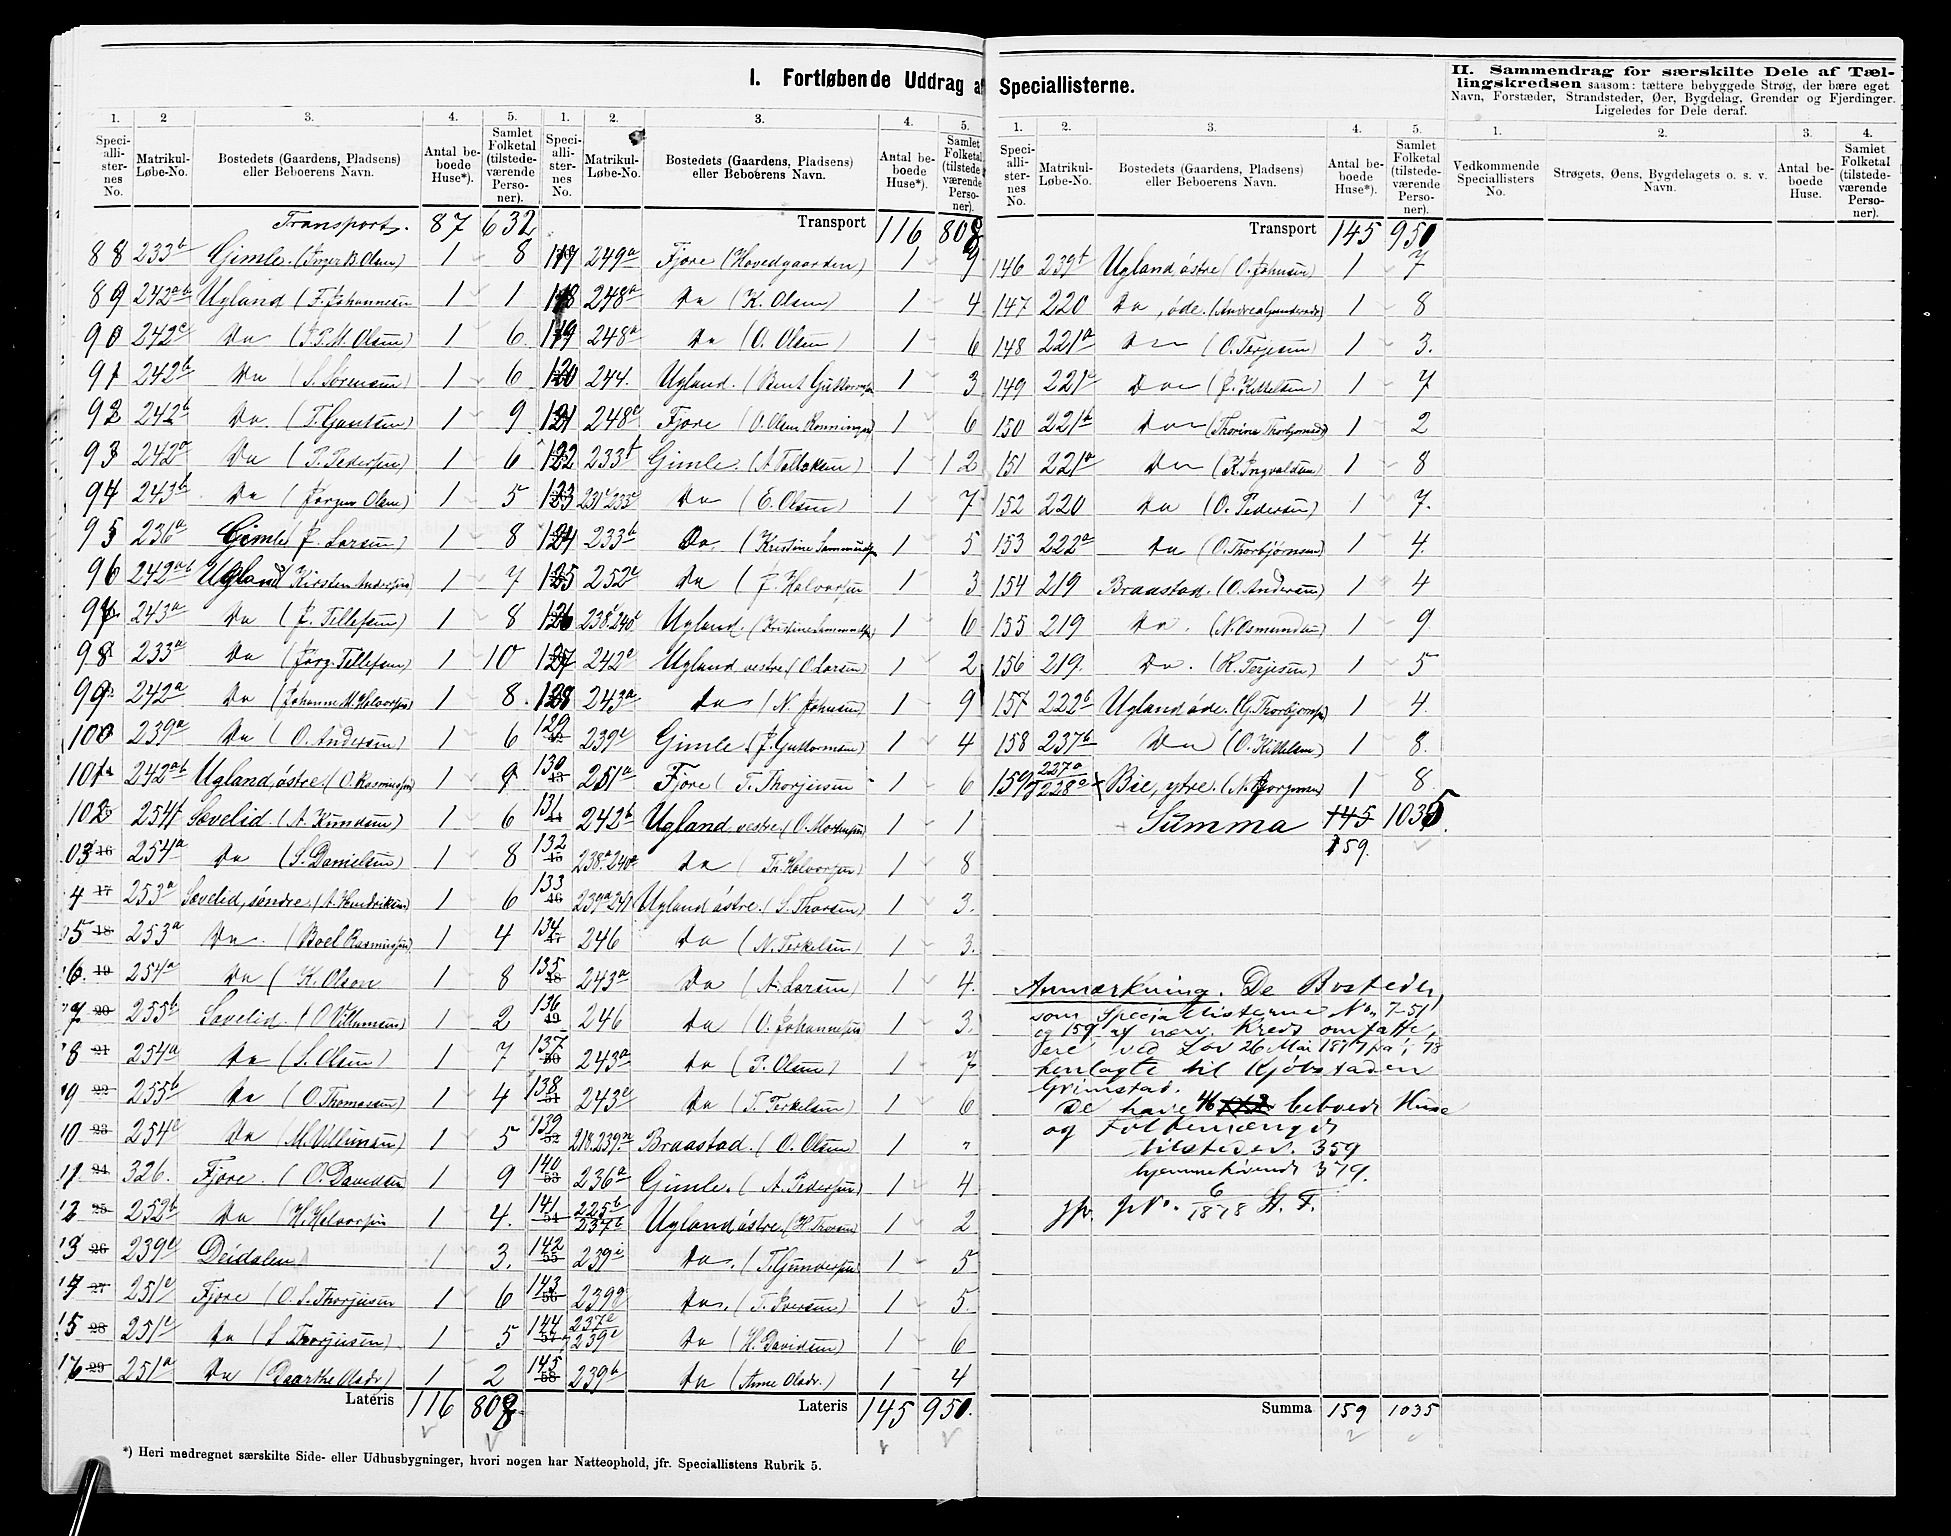 I. Fortløbende Uddrag af Speciallisterne.
II. Sammendrag for særskilte Dele af Tællingskredsen saasom: tættere bebyggede Strøg, der bære eget
Navn, Forstæder, Strandsteder, Øer, Bygdelag, Grender og Fjerdinger.
Ligeledes for Dele deraf.
1. Speciallisternes No. 2 Matrikul-Løbe-No. 3. Bostedets (Gaardens, Pladsens) eller Beboerens Navn. 4. Antal beboede Huse*). 5. Samlet Folketal (tilstedeværende Personer).
Transport. 87 632
88 233b Gimle. (Inger B. Olsen) 1 8
89 242ab Ugland (F. Johannesen 1 1
90 242c Do (J.P.M. Olsen) 1 6
91 242b Do (S. Sørensen) 1 6
92 242b Do. (T. Gautsen) 1 9
93 242a Do (P. Pedersen) 1 6
94 243b Do (Jørgen Olsen) 1 5
95 236a Gimle (J. Larsen) 1 8
96 242ab Ugland (Kirsten Andersen) 1 7
97 243a Do (J. Tellefsen) 1 8
98 233a Do (Jørg. Tellefsen) 1 10
99 242a Do (Johanne M. Halvorsen) 1 8
100 239a Do (O. Andersen) 1 6
101 242ab Ugland østre (O. Rasmussen) 1 9
102 254f Sævelid (A. Knudsen) 1 6
03 16 254a Do (S. Danielsen) 1 8
4 17 253a Sævelid, søndre. (A. Hendriksen) 1 6
5 18 253a Do. (Boel Rasmussen) 1 4
6. 19 254a Do (K. Olsen 1 8
7 20 255b Sævelid. (O. Villumsen) 1 2
8 21 254a Do (S. Olsen) 1 7
9 22 255b Do (O. Thomassen) 1 4
10 23 254c Do (M. Villumsen) 1 5
11 24 326. Fjære. (O. Davidsen 1 9
12 25 252b Do (H. Halvorsen 1 4.
13 26 239c Deidalen) 1 3.
14 27 251c Fjære (O. S. Thorjusen 1 6
15 28 251c Do (S Thorjusen) 1 5
16 29 251a Do (Daarthe Olsdr.) 1 2
Lateris 116 808
*) Heri medregnet særskilte Side- eller Udhusbygninger, hvori nogen har Natteophold, jfr. Speciallistens Rubrik 5.
1. Speciallisternes No. 2. Matrikul-Løbe-No. 3. Bostedets (Gaardens, Pladsens) eller Beboerens Navn. 4. Antal beboede Huse*). 5. Samlet Folketal (tilstedeværende Personer).
Transport 116 808
117 249a Fjære (Hovedgaarden) 1 9
118 248a Do (K. Olsen) 1 4
119 248a Do (O. Olsen) 1 6
120 244. Ugland. (Bent Guttormsen 1 3
121 248c Fjære (O. Olsen Rønningen) 1 6
122 233f Gimle. (A Tellefsen) 1 12
123 Do (E. Olsen) 1 7
124 233b Do. (Kristine Sammundsen 1 5
125 252c Do (J. Halvorsen 1 3
126 Ugland. (Kristine Sammundsen) 1 6
127 242c Ugland vestre (O. Larsen) 1 2
128 243a Do (N. Johnsen) 1 9
129 239c Gimle (J. Guttormsen) 1 4
130 251a Fjære (T. Thorjusen 1 6
131 242b Ugland vestre (O. Mortensen) 1 1
132 238a 240a Do (Th. Halvorsen) 1 8
133 46 239a 241 Ugland østre. (S. Thorsen) 1 3.
134 47 246 Do (N. Terkelsen) 1 3.
135 48 243a Do (A. Larsen) 1 4.
136 49 246 Do (O. Johannesen) 1 3.
137 50 243a Do (P. Olsen) 1 7
138 51 243c Do (T. Terkelsen) 1 6
139 52 218.239 Braastad. (O. Olsen) 1 "
140 53 236a Gimle. (A. Pedersen) 1 4.
141 54 225b 237b Ugland østre. (H. Thorsen) 1 2
142 55 239i Do. (T. Gundersen) 1 5
143 56 239g Do. (T. Iversen) 1 5.
144 57 237e 239e Do (H. Davidsen) 1 6
145 58 239b Do (Anne Olsdr.) 1 4
Lateris 145 950.
1. Speciallisternes No. 2. Matrikul-Løbe-No. 3. Bostedets (Gaardens, Pladsens) eller Beboerens Navn. 4. Antal beboede Huse*). 5. Samlet Folketal (tilstedeværende Personer).
Transport 145 950
146 239f Ugland østre (O. Johnsen) 1 7
147 220 Do, øde. (Andrea Gundersdr) 1 8
148 221a Do (O. Terjesen) 1 3.
149 221c Do (J. Kittelsen) 1 7
150 221b Do (Thorine Thorbjørnsdr) 1 2
151 221a Do (K. Ingvaldsen) 1 8
152 220 Do (O. Pedersen) 1 7.
153 222a Do (O. Thorbjørnsen) 1 4.
154 219 Braastad. (O. Andersen) 1 4
155 219 Do. (N. Osmundsen) 1 9
156 219. Do. (R. Terjesen) 1 5
157 222b Ugland øde. (G. Thorbjørnsen) 1 4.
158 237b Do (O. Kittelsen) 1 8.
159 227a 228a Bie, ytre. (N. Bjørgensen) 1 8
Summa 145 1035.
159.
Anmærkning. De Bosteder,
som Speciallisterne No. 7-51
og 159 af nærv. Kreds omfatte,
ere ved Lov 26 Mai 1877 fra 1/1 78
henlagte til Kjøbstaden
Grimstad.
De have 46 beboede Huse
og Folkemængde
tilstedev. 359
hjemmehørende 379.
jfr. JNo. 6/1878 St. F.
Summa 159 1035
1. Vedkommende Speciallisters No. 2. Strøgets, Øens, Bygdelagets o. s. v. Navn. 3. Antal beboede Huse. 4. Samlet Folketal (tilstedeværende Personer).